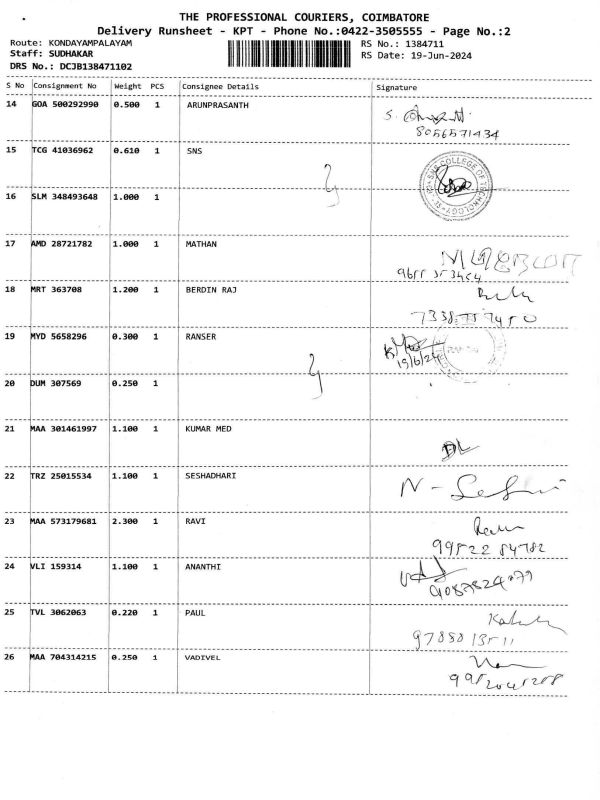 THE PROFESSIONAL COURIERS, COIMBATORE
Delivery Runsheet - KPT - Phone No.:0422-3505555 - Page No.:2
Route: KONDAYAMPALAYAM
Staff: SUDHAKAR
DRS No.: DCJB138471102
RS No.: 1384711
RS Date: 19-Jun-2024
S No Consignment No Weight PCS Consignee Details Signature
14 GOA 500292990 0.500 1 ARUNPRASANTH
8056571434
15 TCG 41036962 0.610 1 SNS
SNS COLLEGE OF TECHNOLOGY
16 SLM 348493648 1.000 1
17 AMD 28721782 1.000 1 MATHAN
18 MRT 363708 1.200 1 BERDIN RAJ
19 MYD 5658296 0.300 1 RANSER
19/6/24
20 DUM 307569 0.250 1
21 MAA 301461997 1.100 1 KUMAR MED
22 TRZ 25015534 1.100 1 SESHADHARI
23 MAA 573179681 2.300 1 RAVI
99522 84782
24 VLI 159314 1.100 1 ANANTHI
25 TVL 3062063 0.220 1 PAUL
26 MAA 704314215 0.250 1 VADIVEL